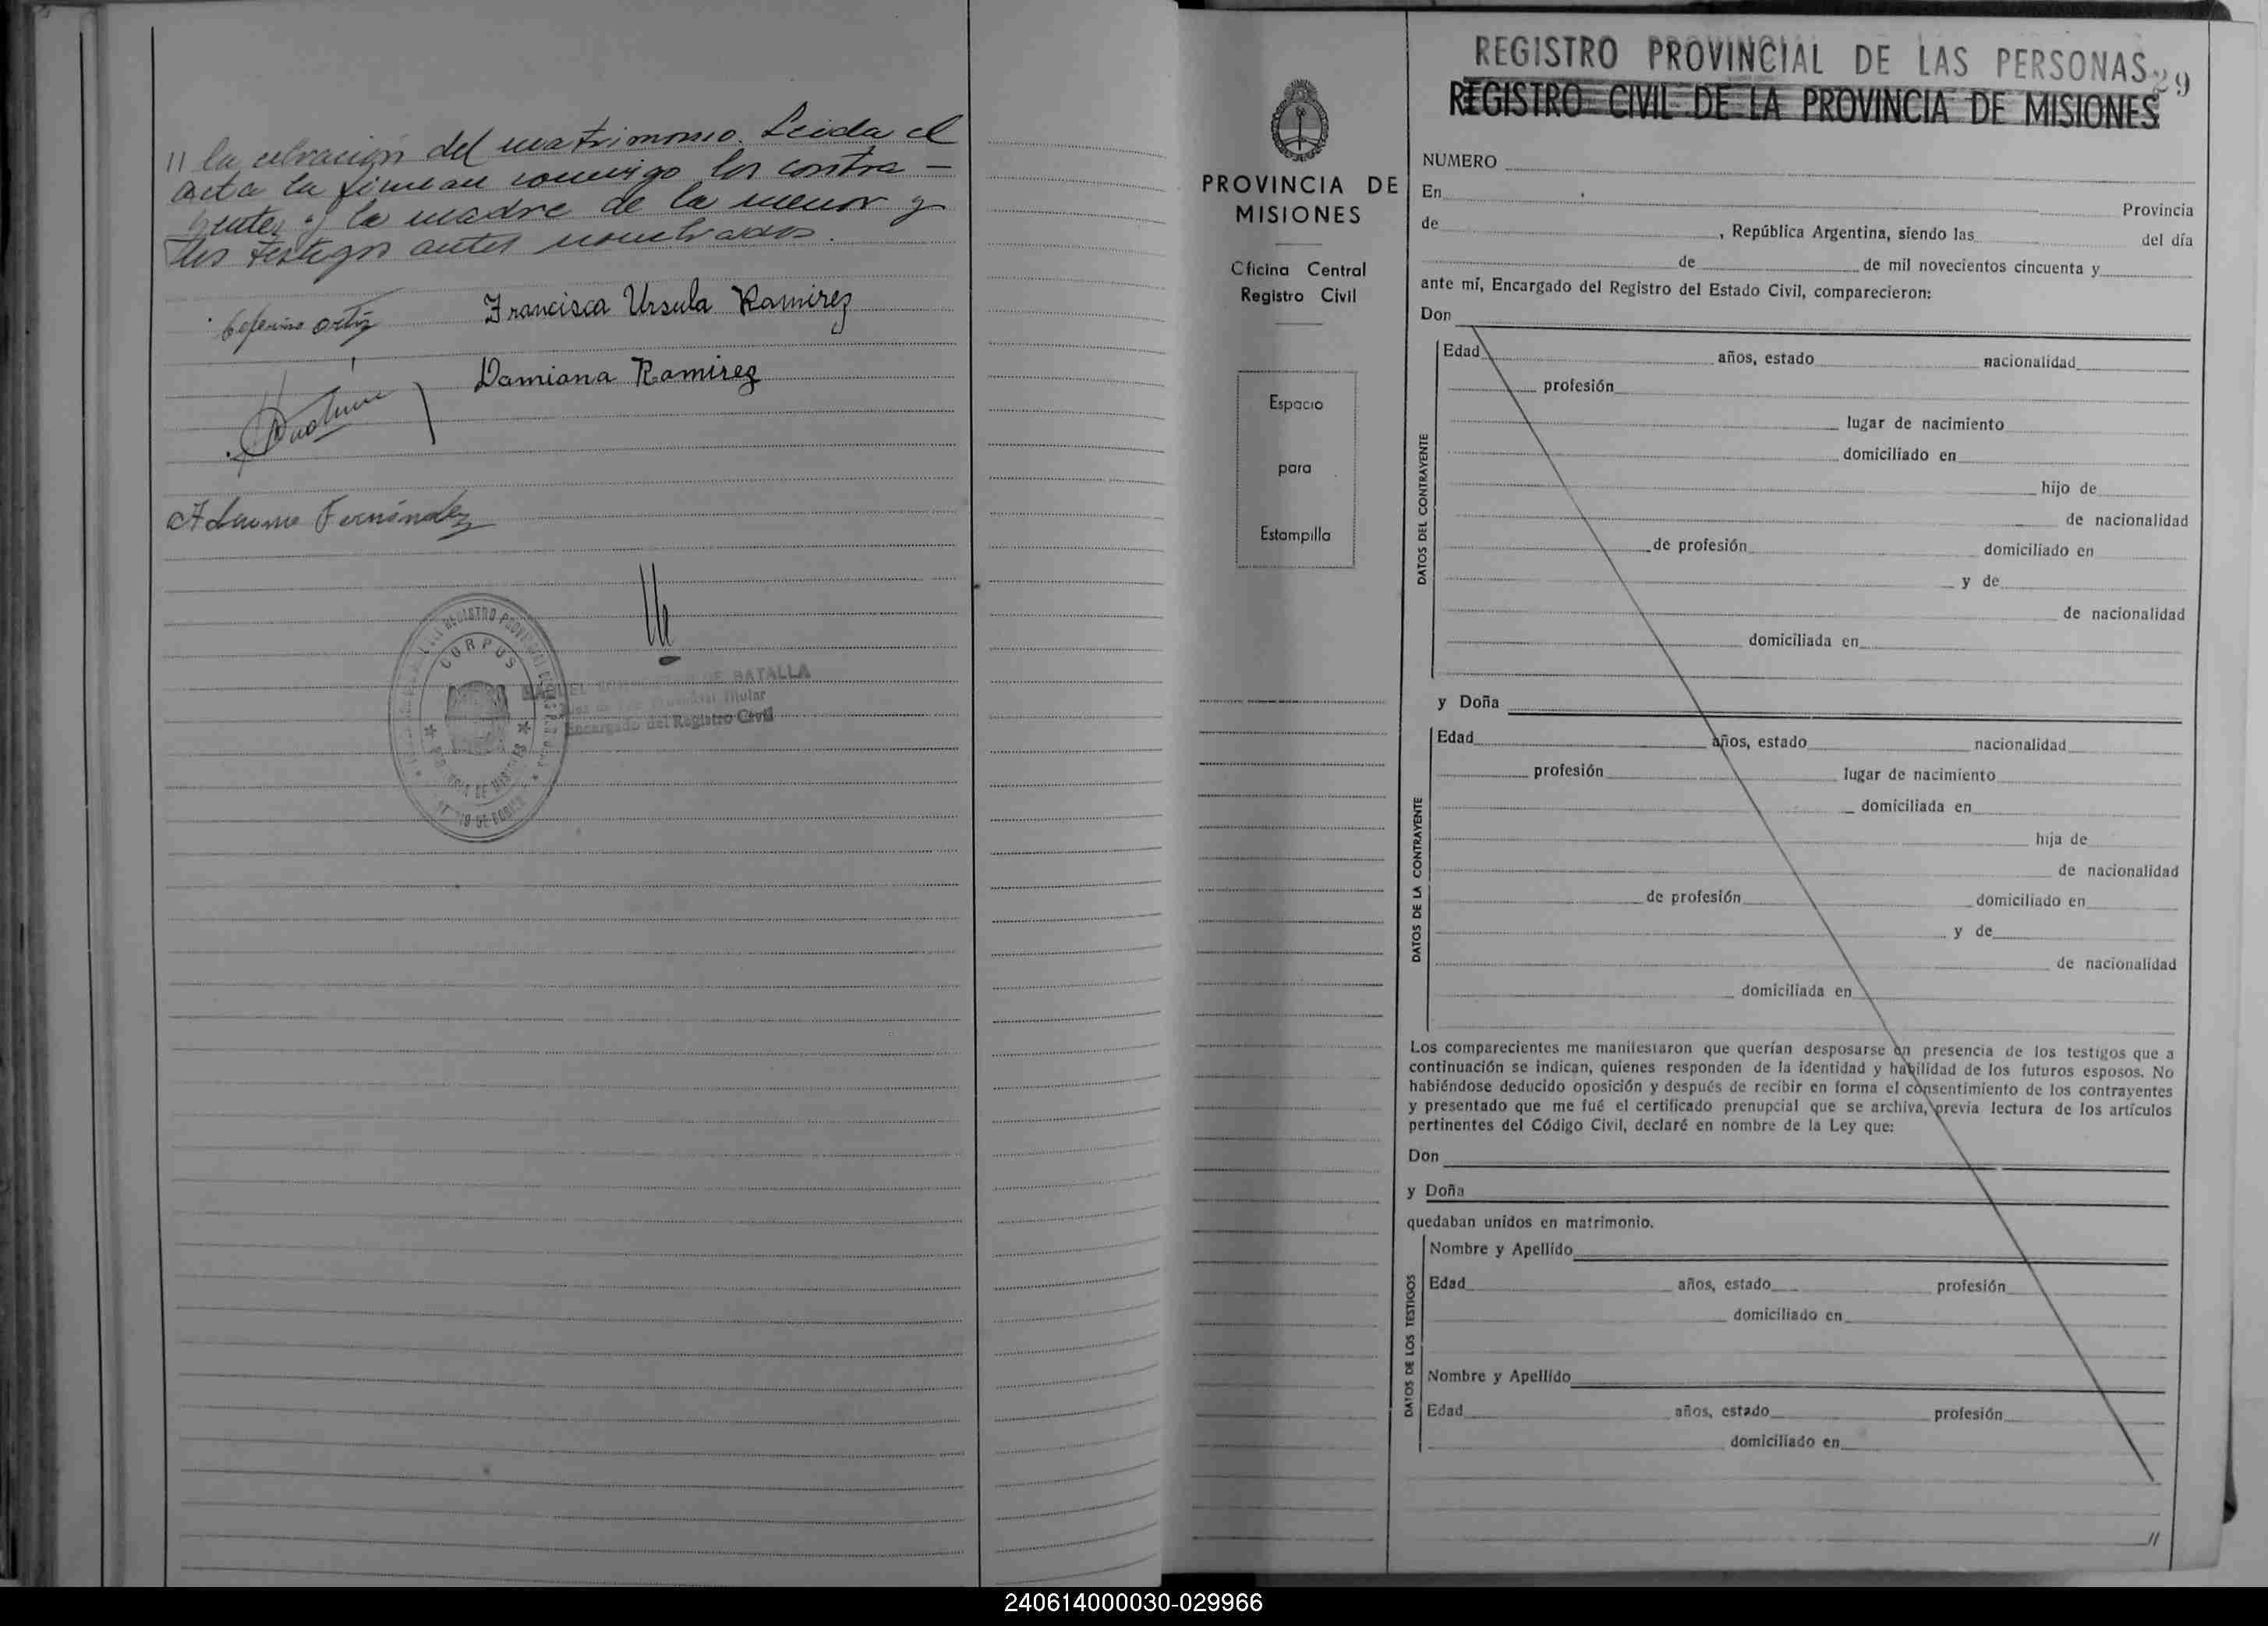 // la celebración del matrimonio. Leida el
acta la firman conmigo los contra-
yentes, la madre de la menor y
los testigos antes nombrados.
Ceferino Ortiz
Francisca Ursula Ramirez
Damiana Ramirez
Fernández
REGISTRO PROVINCIAL
CORPUS
DE BATALLA
Titular
Encargado del Registro Civil
PROVINCIA DE
MISIONES
Oficina Central
Registro Civil
Espacio
para
Estampilla
REGISTRO PROVINCIAL DE LAS PERSONAS
29
REGISTRO CIVIL DE LA PROVINCIA DE MISIONES
NUMERO
En
Provincia
de , República Argentina, siendo las del día
de de mil novecientos cincuenta y
ante mí, Encargado del Registro del Estado Civil, comparecieron:
Don
DATOS DEL CONTRAYENTE
Edad años, estado nacionalidad
profesión
lugar de nacimiento
domiciliado en
hijo de
de nacionalidad
de profesión domiciliado en
y de
de nacionalidad
domiciliada en
y Doña
DATOS DE LA CONTRAYENTE
Edad años, estado nacionalidad
profesión lugar de nacimiento
domiciliada en
hija de
de nacionalidad
de profesión domiciliado en
y de
de nacionalidad
domiciliada en
Los comparecientes me manifestaron que querían desposarse en presencia de los testigos que a
continuación se indican, quienes responden de la identidad y habilidad de los futuros esposos. No
habiéndose deducido oposición y después de recibir en forma el consentimiento de los contrayentes
y presentado que me fué el certificado prenupcial que se archiva, previa lectura de los artículos
pertinentes del Código Civil, declaré en nombre de la Ley que:
Don
y Doña
quedaban unidos en matrimonio.
DATOS DE LOS TESTIGOS
Nombre y Apellido
Edad años, estado profesión
domiciliado en
Nombre y Apellido
Edad años, estado profesión
domiciliado en
//
240614000030-029966